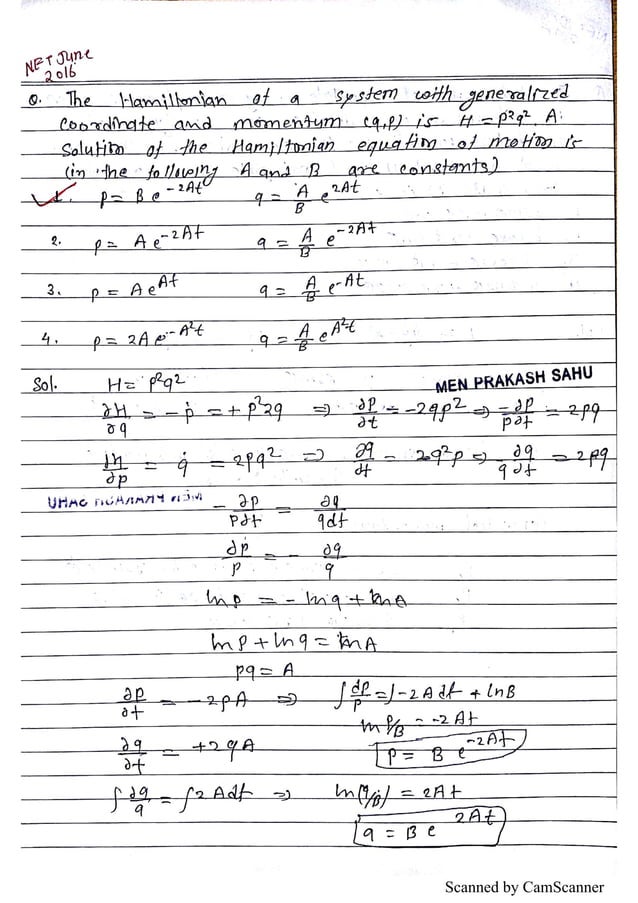 NET June
2016
Q. The Hamiltonian of a system with generalized
coordinate and momentum (q,p) is H = p²q². A:
Solution of the Hamiltonian equation of motion is
(in the following A and B are constants)
1. p = B e^-2At q = A/B e^2At
2. p = A e^-2At q = A/B e^-2At
3. p = A e^At q = A/B e^-At
4. p = 2A e^-A²t q = A/B e^A²t
Sol. H = p²q²
MEN PRAKASH SAHU
∂H/∂q = -ṗ = + p²2q ⇒ ∂p/∂t = -2qp² ⇒ -∂p/p∂t = 2pq
∂H/∂p = q̇ = 2pq² ⇒ ∂q/∂t = 2q²p ⇒ ∂q/q∂t = 2pq
-∂p/p∂t = ∂q/q∂t
∂p/p = - ∂q/q
ln p = - ln q + ln A
ln p + ln q = ln A
pq = A
∂p/∂t = -2pA ⇒ ∫dp/p = ∫-2A dt + ln B
ln p/B = -2At
p = B e^-2At
∂q/∂t = +2qA
∫∂q/q = ∫2A dt ⇒ ln(q/B) = 2At
q = B e^2At
Scanned by CamScanner